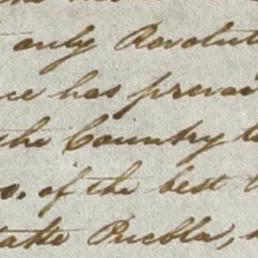 only Revolut
ce has prevai
the Country to
o. of the best
take Puebla,